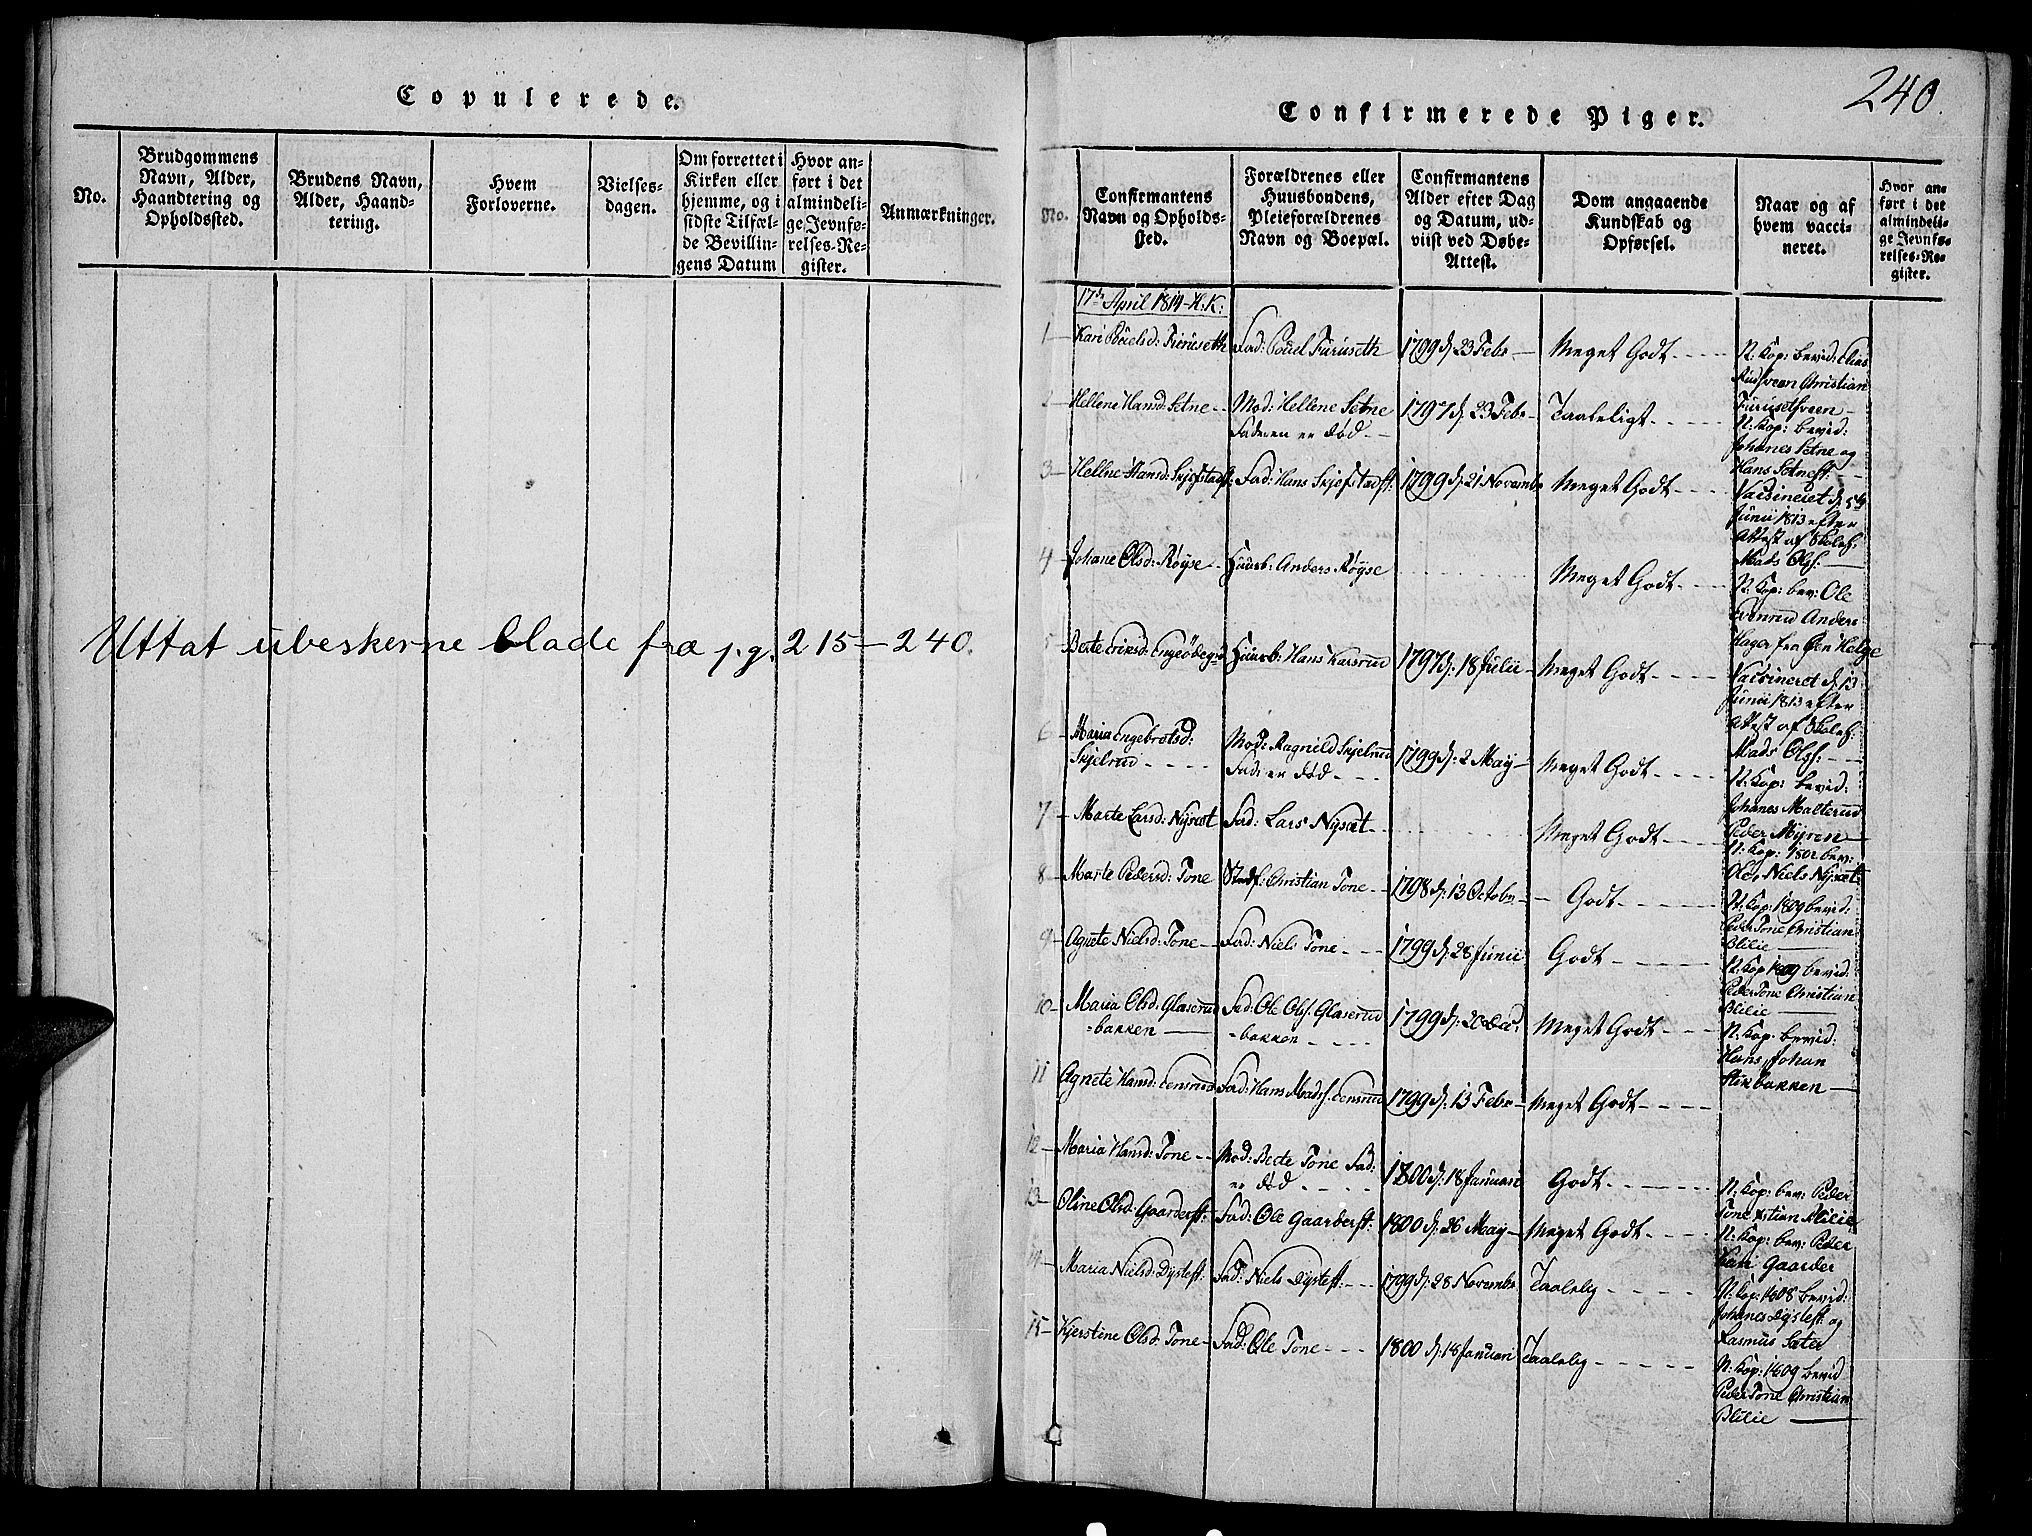 Copulerede.
No.
Brudgommens
Navn, Alder,
Haandtering og
Opholdssted.
Brudens Navn,
Alder, Haand-
tering.
Hvem
Forloverne.
Vielses-
dagen.
Om forrettet i
Kirken eller
hjemme, og i
sidste Tilfæl-
de Bevillin-
gens Datum
Hvor an-
ført i det
almindeli-
ge Jevnfø-
relses-Re-
gister.
Anmærkninger.
Uttat ubeskerne blade fra pg. 215—240.
240.
Confirmerede Piger.
No.
Confirmantens
Navn og Opholds-
sted.
Forældrenes eller
Huusbondens,
Pleieforældrenes
Navn og Boepæl.
Confirmantens
Alder efter Dag
og Datum, ud-
viist ved Døbe-
Attest.
Dom angaaende
Kundskab og
Opførsel.
Naar og af
hvem vacci-
neret.
Hvor an-
ført i det
almindeli-
ge Jevnfø-
relses-Re-
gister.
17de April 1814-H.K:
1 - Kari Poüelsd: Fürüseth Fad: Poüel Fürüseth 1799 d: 23 Febr - Meget Godt
N: Kop: bevid: Elias
Christian
Fürusetveen -
2 - Hellene Hansd: Setne - Mod: Hellene Setne 1797 d: 23 Febr - Taaleligt
Faderen er død -
N: Kop: bevid:
Johanes Setne og
Hans Setneft: -
3 - Hellne Hansd: Skjefstadft: Fad: Hans Skjefstadft: 1799 d: 21 Novembr Meget Godt
Vacsineret d: 5te
Junii 1813 efter
Attest af Skolef:
Mads Olsf: -
4 - Johane Olsd: Røyse - Huusb: Anders Røyse Meget Godt
N: Kop: bev: Ole
Anders
Hager fra Øen Helge
5 Berte Eriksd: Huusb: Hans 1797 d: 18 Julii - Meget Godt
Vacsineret d: 13
Junii 1813 efter
Attest af Skolef:
Mads Olsf: -
6 - Maria Engebretsd: Mod: Ragnild Skjelrud 1799 d: 2 May - Meget Godt
Skjelrud Fad: er død -
N: Kop: bevid:
Johanes Malterud
Peder Myren
7 - Marte Larsd: Nysæt Fad: Lars Nysæt Meget Godt
N: Kop: 1802 bev:
Ole, Niels Nysæt
8 - Marte Pedersd: Tone Stedf: Christian Tone - 1798 d: 13 Octobr - Godt
N: Kop: 1809 bevid:
Peder Tone Christian
Blilie
9 - Agnete Nielsd: Tone - Fad: Niels Tone 1799 d: 28 Junii Godt
N: Kop 1809 bevid:
Peder Tone Christian
Blilie
10 - Maria Olsd: Glaserud Fad: Ole Olsf: Glaserud 1799 d: 20 Dec: Meget Godt
-bakken - -bakken
N: Kop: bevid:
Hans, Johan
Stikbakken -
11 Agnete Hansd: Fad: Hans Madsf: 1799 d: 13 Febr - Meget Godt
12 - Maria Hansd: Tone - Mod: Berte Tone Fad: 1800 d: 18 Januari Godt
er død
N: Kop: bev: Peder
Tone Xstian Blilie
13 - Oline Olsd: Gaarderft: Fad: Ole Gaarderft: 1800 d: 26 May - Meget Godt
N: Kop: bev: Peder
Kari Gaarder
14 - Maria Nielsd: Dysteft: Fad: Niels Dysteft: - 1799 d: 28 Novembr Taalelig
N: Kop: 1808 bevid:
Johanes Dysteft: og
Rasmus Sæter
15 - Kjerstine Olsd: Tone - Fad: Ole Tone 1800 d: 18 Januari Taalelig
N: Kop: 1809 bevid
Peder Tone Christian
Blilie